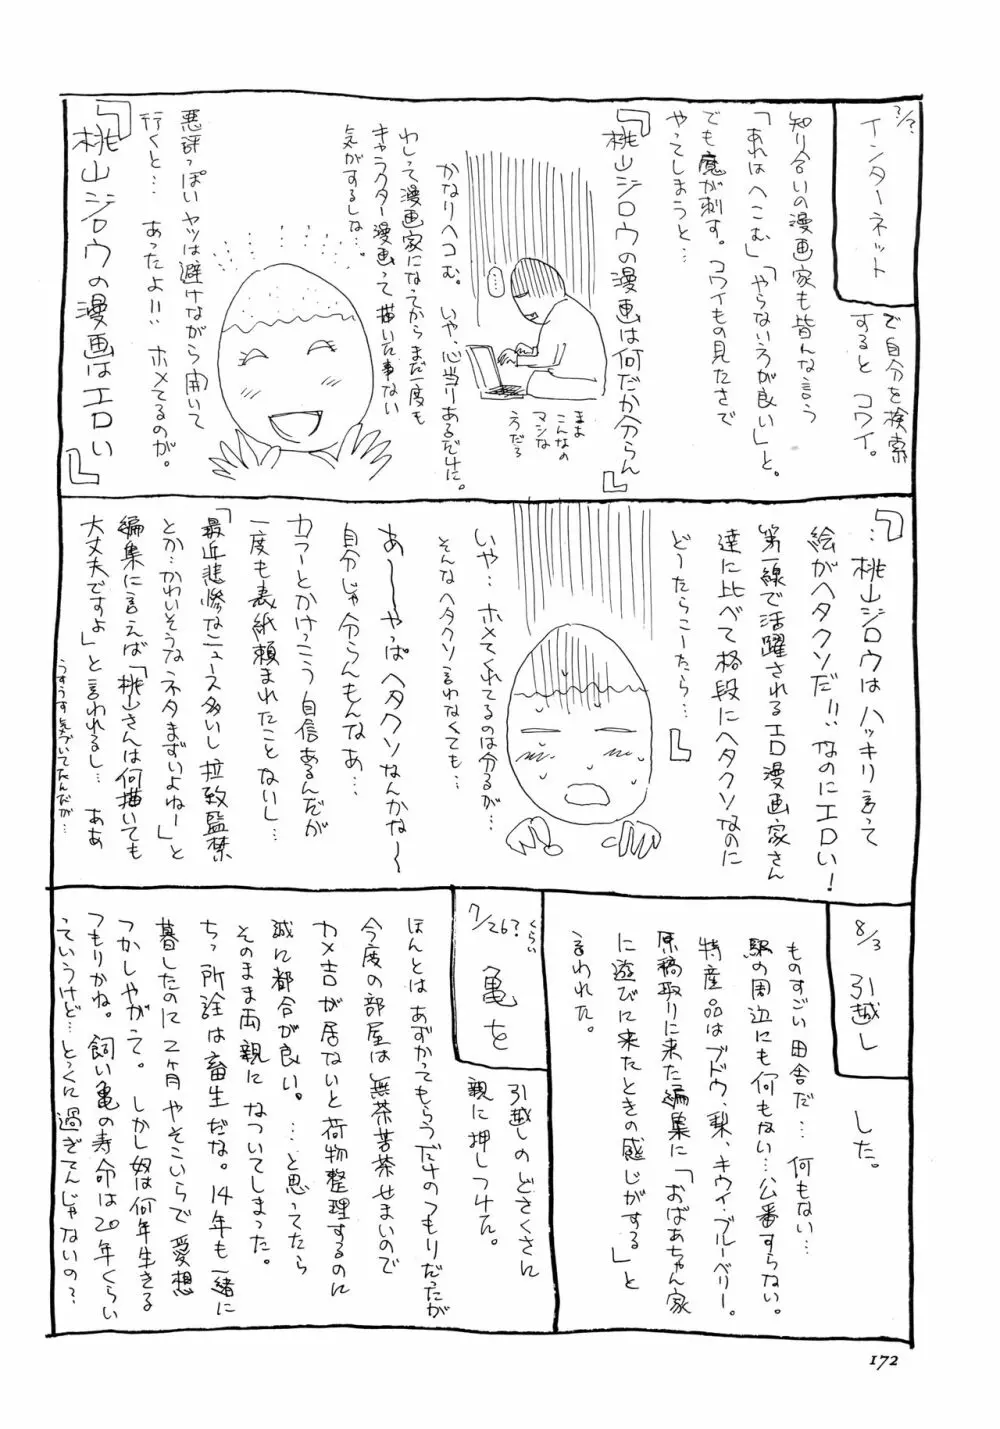 ?/?
インターネット
で自分を検索
すると コワイ。
知り合いの漫画家も皆んな言う
「あれはへこむ」「やらないろが良い」と。
でも魔が刺す。コワイもの見たさで
やってしまうと…
『桃山ジロウの漫画は何だか分らん』
…
まま
こんなの
マシな
うだろ
かなりヘコむ。いや、心当りあるだけに。
わしって漫画家になってからまだ一度も
キャラクター漫画って描いた事ない
気がするしな…
悪評っぽいヤツは避けながら開いて
行くと… あったよ!!ホメてるのが。
『桃山ジロウの漫画はエロい』
『…桃山ジロウはハッキリ言って
絵がヘタクソだ!!なのにエロい!
第一線で活躍されるエロ漫画家さん
達に比べて格段にヘタクソなのに
どーたらこーたら…』
いや… ホメてくれてるのは分るが…
そんなヘタクソ言わなくても…
あ――やっぱヘタクソなんかな〜
自分じゃ分らんもんなぁ…
カラーとかけっこう自信あるんだが
一度も表紙頼まれたことないし…
「最近悲惨なニュース多いし拉致監禁
とか…かわいそうなネタまずいよねー」と
編集に言えば「桃山さんは何描いても
大丈夫ですよ」と言われるし… ああ
うすうす気づいてたんだが…
8/3 引越し
した。
ものすごい田舎だ…何もない…
駅の周辺にも何もない…公番すらない。
特産品はブドウ、梨、キウイ・ブルーベリー。
原稿取りに来た編集に「おばあちゃん家
に遊びに来たときの感じがする」と
言われた。
7/26?くらい
亀を
引越しのどさくさに
親に押しつけた。
ほんとはあずかってもらうだけのつもりだったが
今度の部屋は無茶苦茶せまいので
カメ吉が居ないと荷物整理するのに
誠に都合が良い。…と思ってたら
そのまま両親になついてしまった。
ちっ所詮は畜生だな。14年も一緒に
暮したのに2ヶ月やそこいらで愛想
つかしやがって。しかし奴は何年生きる
つもりかね。飼い亀の寿命は20年くらい
ていうけど…とっくに過ぎてんじゃないの?
172